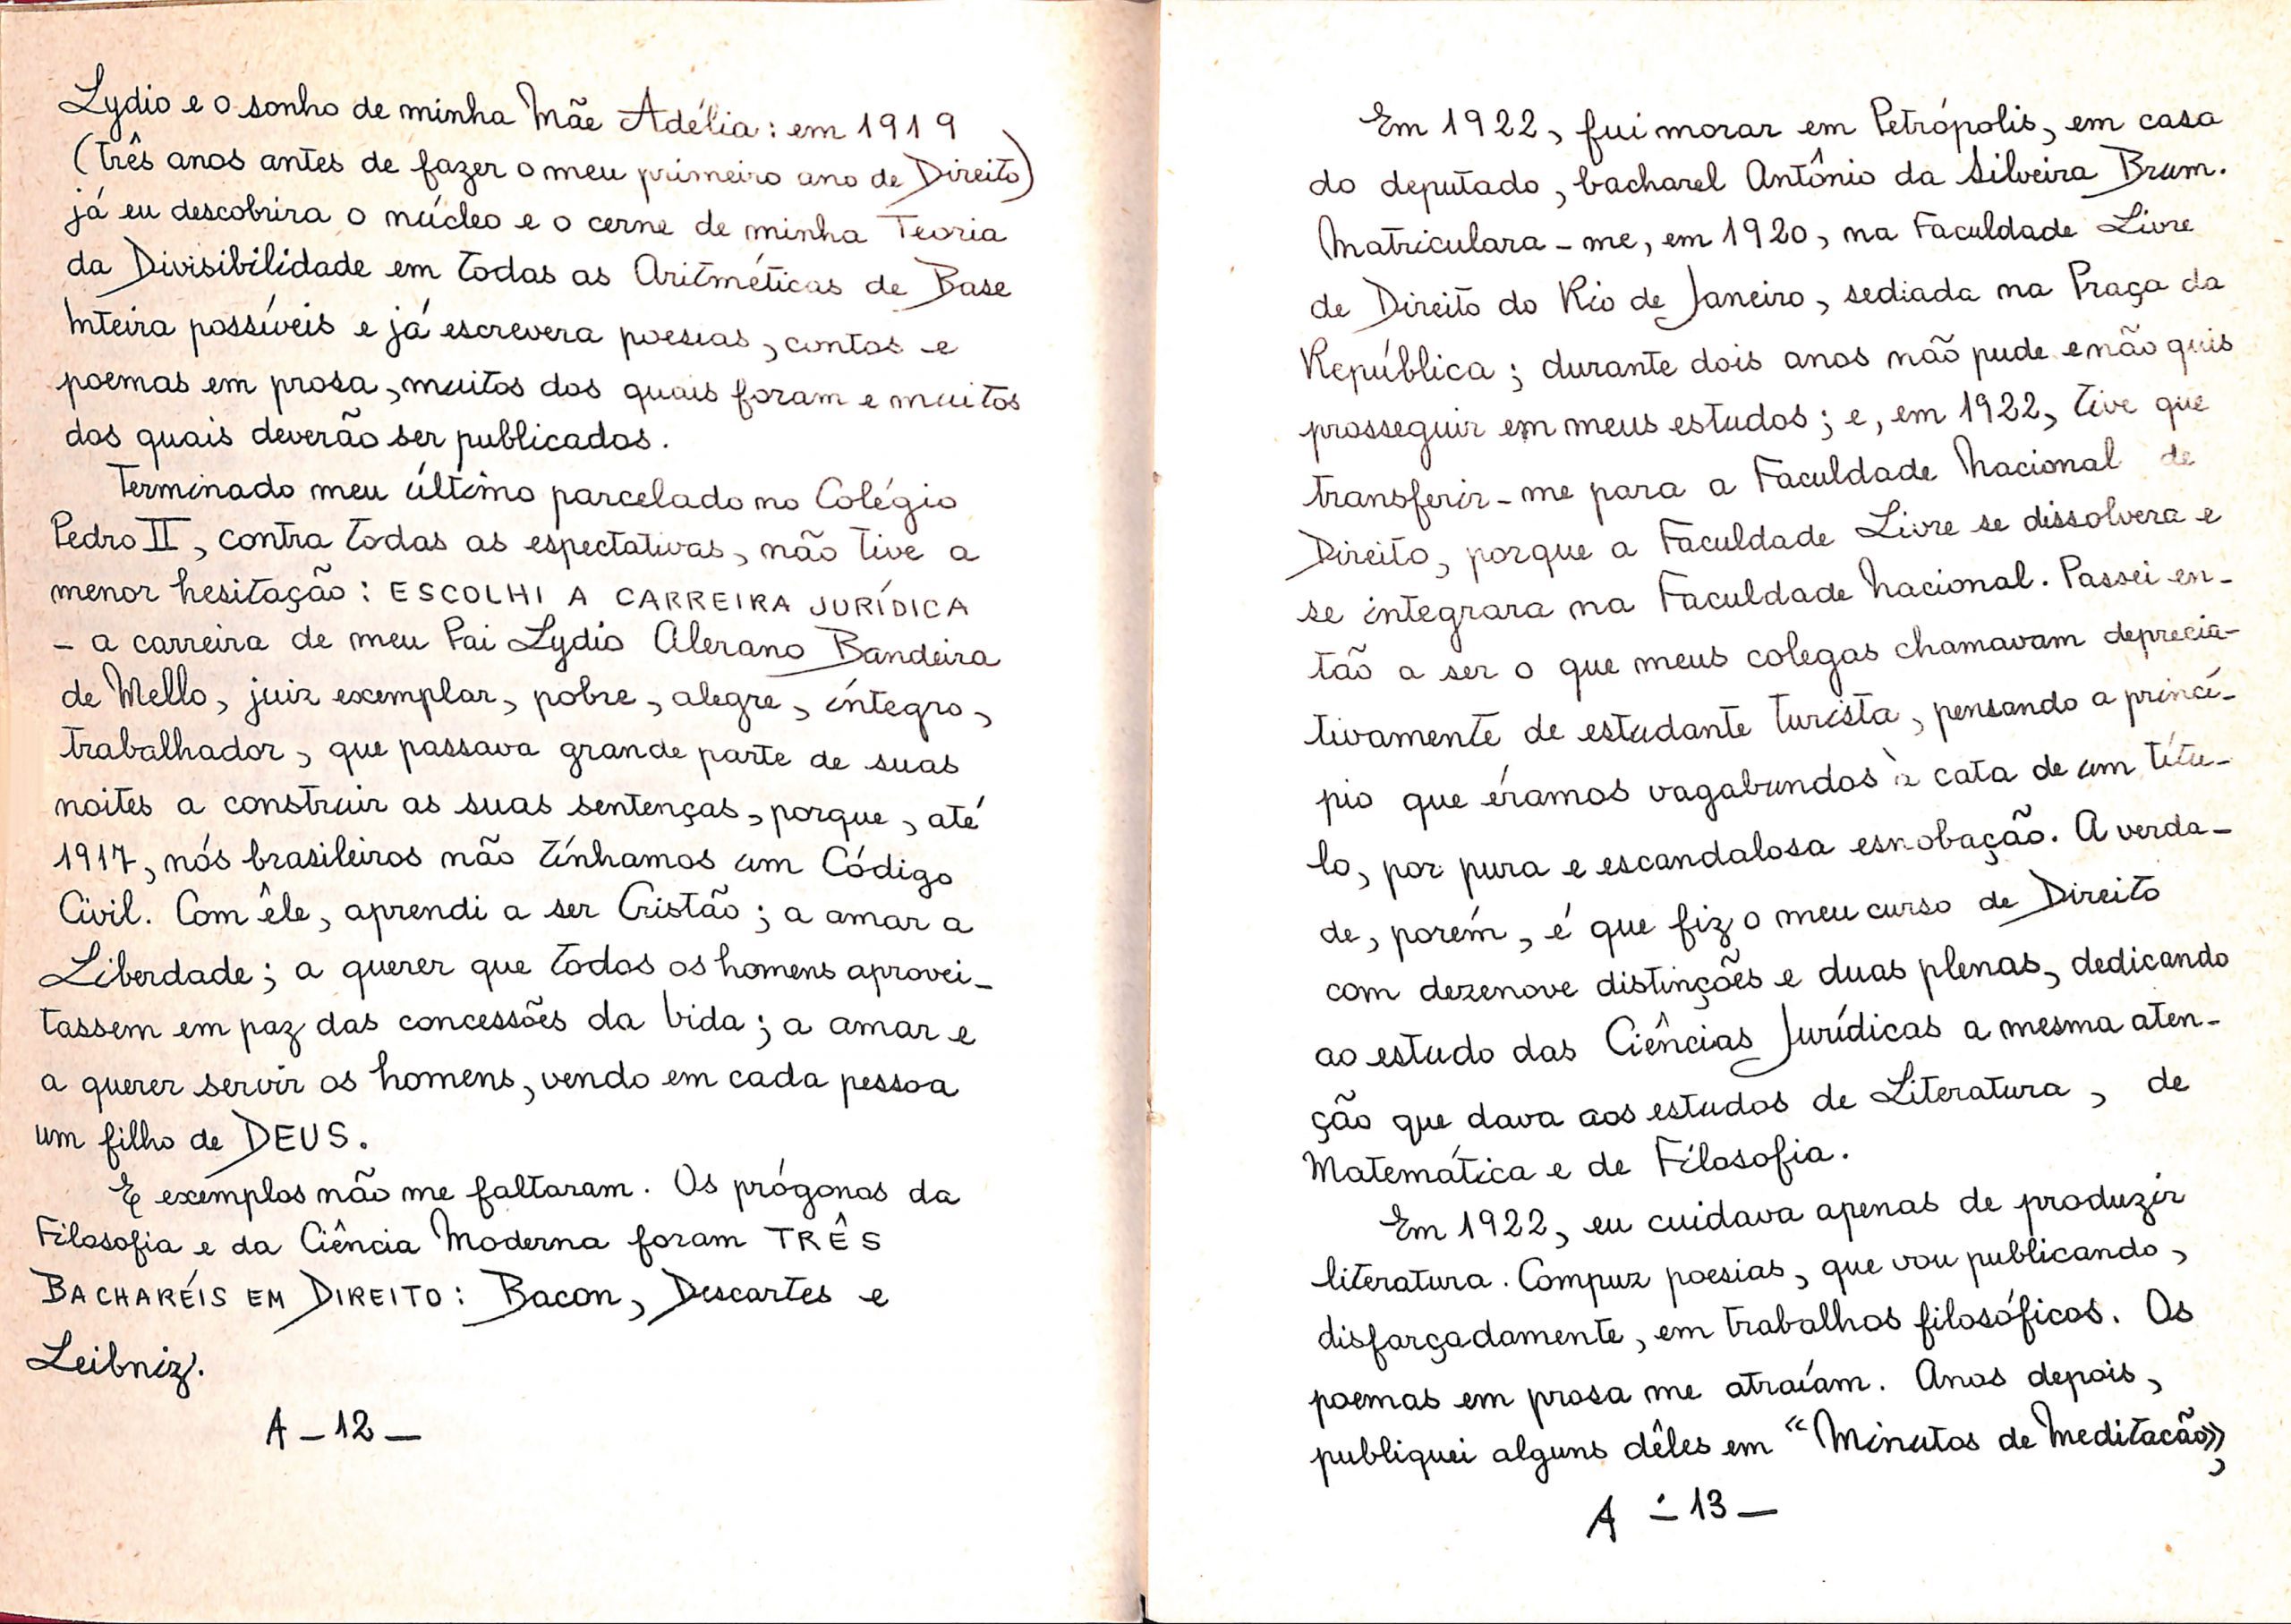 Lydio e o sonho de minha Mãe Adélia: em 1919
(três anos antes de fazer o meu primeiro ano de Direito)
já eu descobrira o núcleo e o cerne de minha Teoria
da Divisibilidade em todas as Aritméticas de Base
Inteira possíveis e já escrevera poesias, contos e
poemas em prosa, muitos dos quais foram e muitos
dos quais deverão ser publicados.
Terminado meu último parcelado no Colégio
Pedro II, contra todas as espectativas, não tive a
menor hesitação: ESCOLHI A CARREIRA JURÍDICA
- a carreira de meu Pai Lydio Alerano Bandeira
de Mello, juiz exemplar, pobre, alegre, íntegro,
trabalhador, que passava grande parte de suas
noites a construir as suas sentenças, porque, até
1917, nós brasileiros não tínhamos um Código
Civil. Com êle, aprendi a ser Cristão; a amar a
Liberdade; a querer que todos os homens aprovei-
tassem em paz das concessões da Vida; a amar e
a querer servir os homens, vendo em cada pessoa
um filho de DEUS.
E exemplos não me faltaram. Os prógonos da
Filosofia e da Ciência Moderna foram TRÊS
BACHARÉIS EM DIREITO: Bacon, Descartes e
Leibniz.
A - 12 -
Em 1922, fui morar em Petrópolis, em casa
do deputado, bacharel Antônio da Silveira Brum.
Matriculara-me, em 1920, na Faculdade Livre
de Direito do Rio de Janeiro, sediada na Praça da
República; durante dois anos não pude e não quis
prosseguir em meus estudos; e, em 1922, tive que
transferir-me para a Faculdade Nacional de
Direito, porque a Faculdade Livre se dissolvera e
se integrara na Faculdade Nacional. Passei en-
tão a ser o que meus colegas chamavam deprecia-
tivamente de estudante turista, pensando a princí-
pio que éramos vagabundos à cata de um títu-
lo, por pura e escandalosa esnobação. A verda-
de, porém, é que fiz o meu curso de Direito
com dezenove distinções e duas plenas, dedicando
ao estudo das Ciências Jurídicas a mesma aten-
ção que dava aos estudos de Literatura, de
Matemática e de Filosofia.
Em 1922, eu cuidava apenas de produzir
literatura. Compuz poesias, que vou publicando,
disfarçadamente, em trabalhos filosóficos. Os
poemas em prosa me atraíam. Anos depois,
publiquei alguns dêles em "Minutos de Meditacão",
A - 13 -